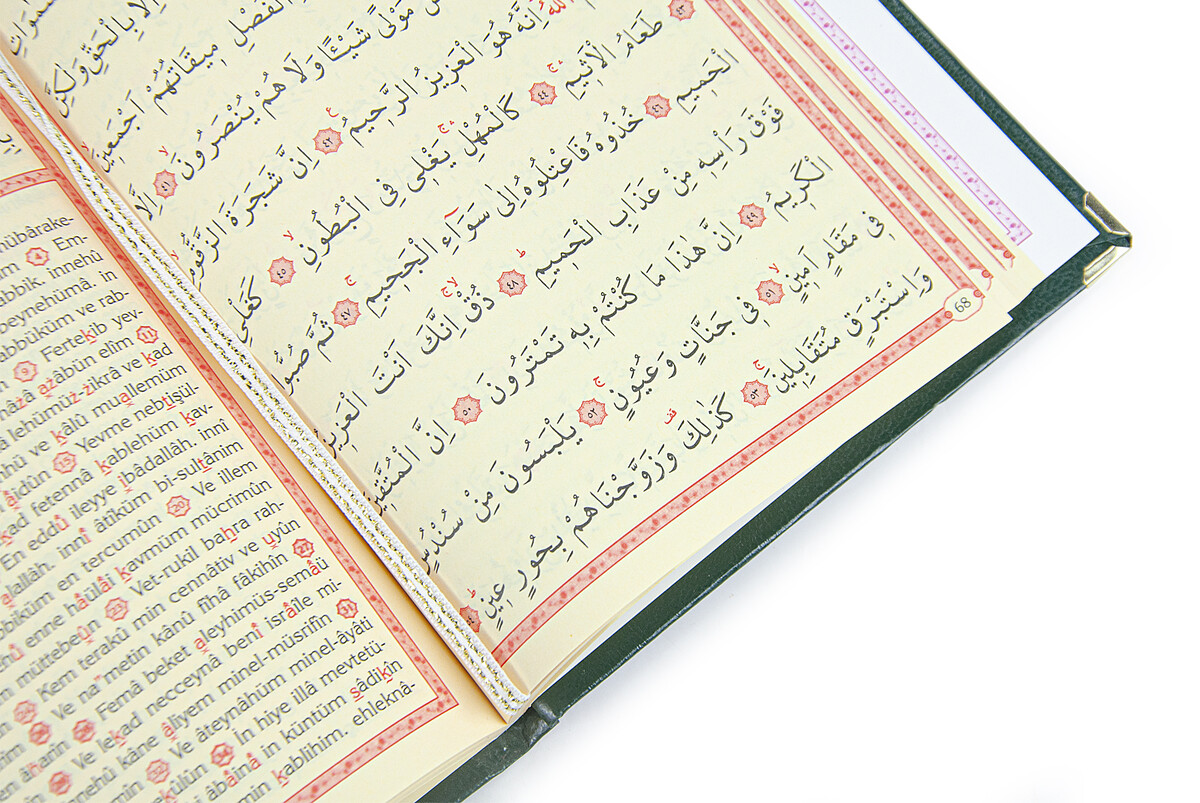 اِلَّا بِالْحَقِّ وَلٰكِنَّ
الْفَصْلِ مِيقَاتُهُمْ اَجْمَعِينَ
مَوْلًى شَيْـًٔا وَلَا هُمْ يُنْصَرُونَ ٤١ اِلَّا
اللّٰهُ اِنَّهُ هُوَ الْعَزِيزُ الرَّحِيمُ ٤٢ اِنَّ شَجَرَةَ الزَّقُّومِ
٤٣ طَعَامُ الْاَثِيمِ ٤٤ كَالْمُهْلِ يَغْلِي فِي الْبُطُونِ ٤٥ كَغَلْيِ
الْحَمِيمِ ٤٦ خُذُوهُ فَاعْتِلُوهُ اِلٰى سَوَٓاءِ الْجَحِيمِ ٤٧ ثُمَّ صُبُّوا
فَوْقَ رَأْسِهِ مِنْ عَذَابِ الْحَمِيمِ ٤٨ ذُقْ اِنَّكَ اَنْتَ الْعَزِيزُ
الْكَرِيمُ ٤٩ اِنَّ هٰذَا مَا كُنْتُمْ بِهِ تَمْتَرُونَ ٥٠ اِنَّ الْمُتَّقِينَ
فِي مَقَامٍ اَمِينٍ ٥١ فِي جَنَّاتٍ وَعُيُونٍ ٥٢ يَلْبَسُونَ مِنْ سُنْدُسٍ
وَاِسْتَبْرَقٍ مُتَقَابِلِينَ ٥٣ كَذٰلِكَ وَزَوَّجْنَاهُمْ بِحُورٍ عِينٍ ٥٤
68
mübârake-
4 Em-
rabbik. innehû
beynehümâ. in
rabbüküm ve rab-
9 Fertekib yev-
hâzâ azâbün elîm 11
lehümüz-zikrâ ve kad
ve kâlû muallemüm
15 Yevme nebtişül-
kad fetennâ kablehüm kav-
En eddû ileyye ibâdallâh. innî
alallâh. innî âtîküm bi-sultânim
en tercumûn 20 Ve illem
enne hâülâi kavmüm mücrimûn
müttebeûn 23 Vet-rukil bahra rah-
Kem terakû min cennâtiv ve uyûn
Ve na'metin kânû fîhâ fâkihîn 27
Femâ beket aleyhimüs-semâü
Ve lekad necceynâ benî isrâîle mi-
kâne âliyem minel-müsrifîn 31
Ve âteynâhüm minel-âyâti
34 İn hiye illâ mevtetü-
âbâinâ in küntüm sâdikîn
min kablihim. ehleknâ-